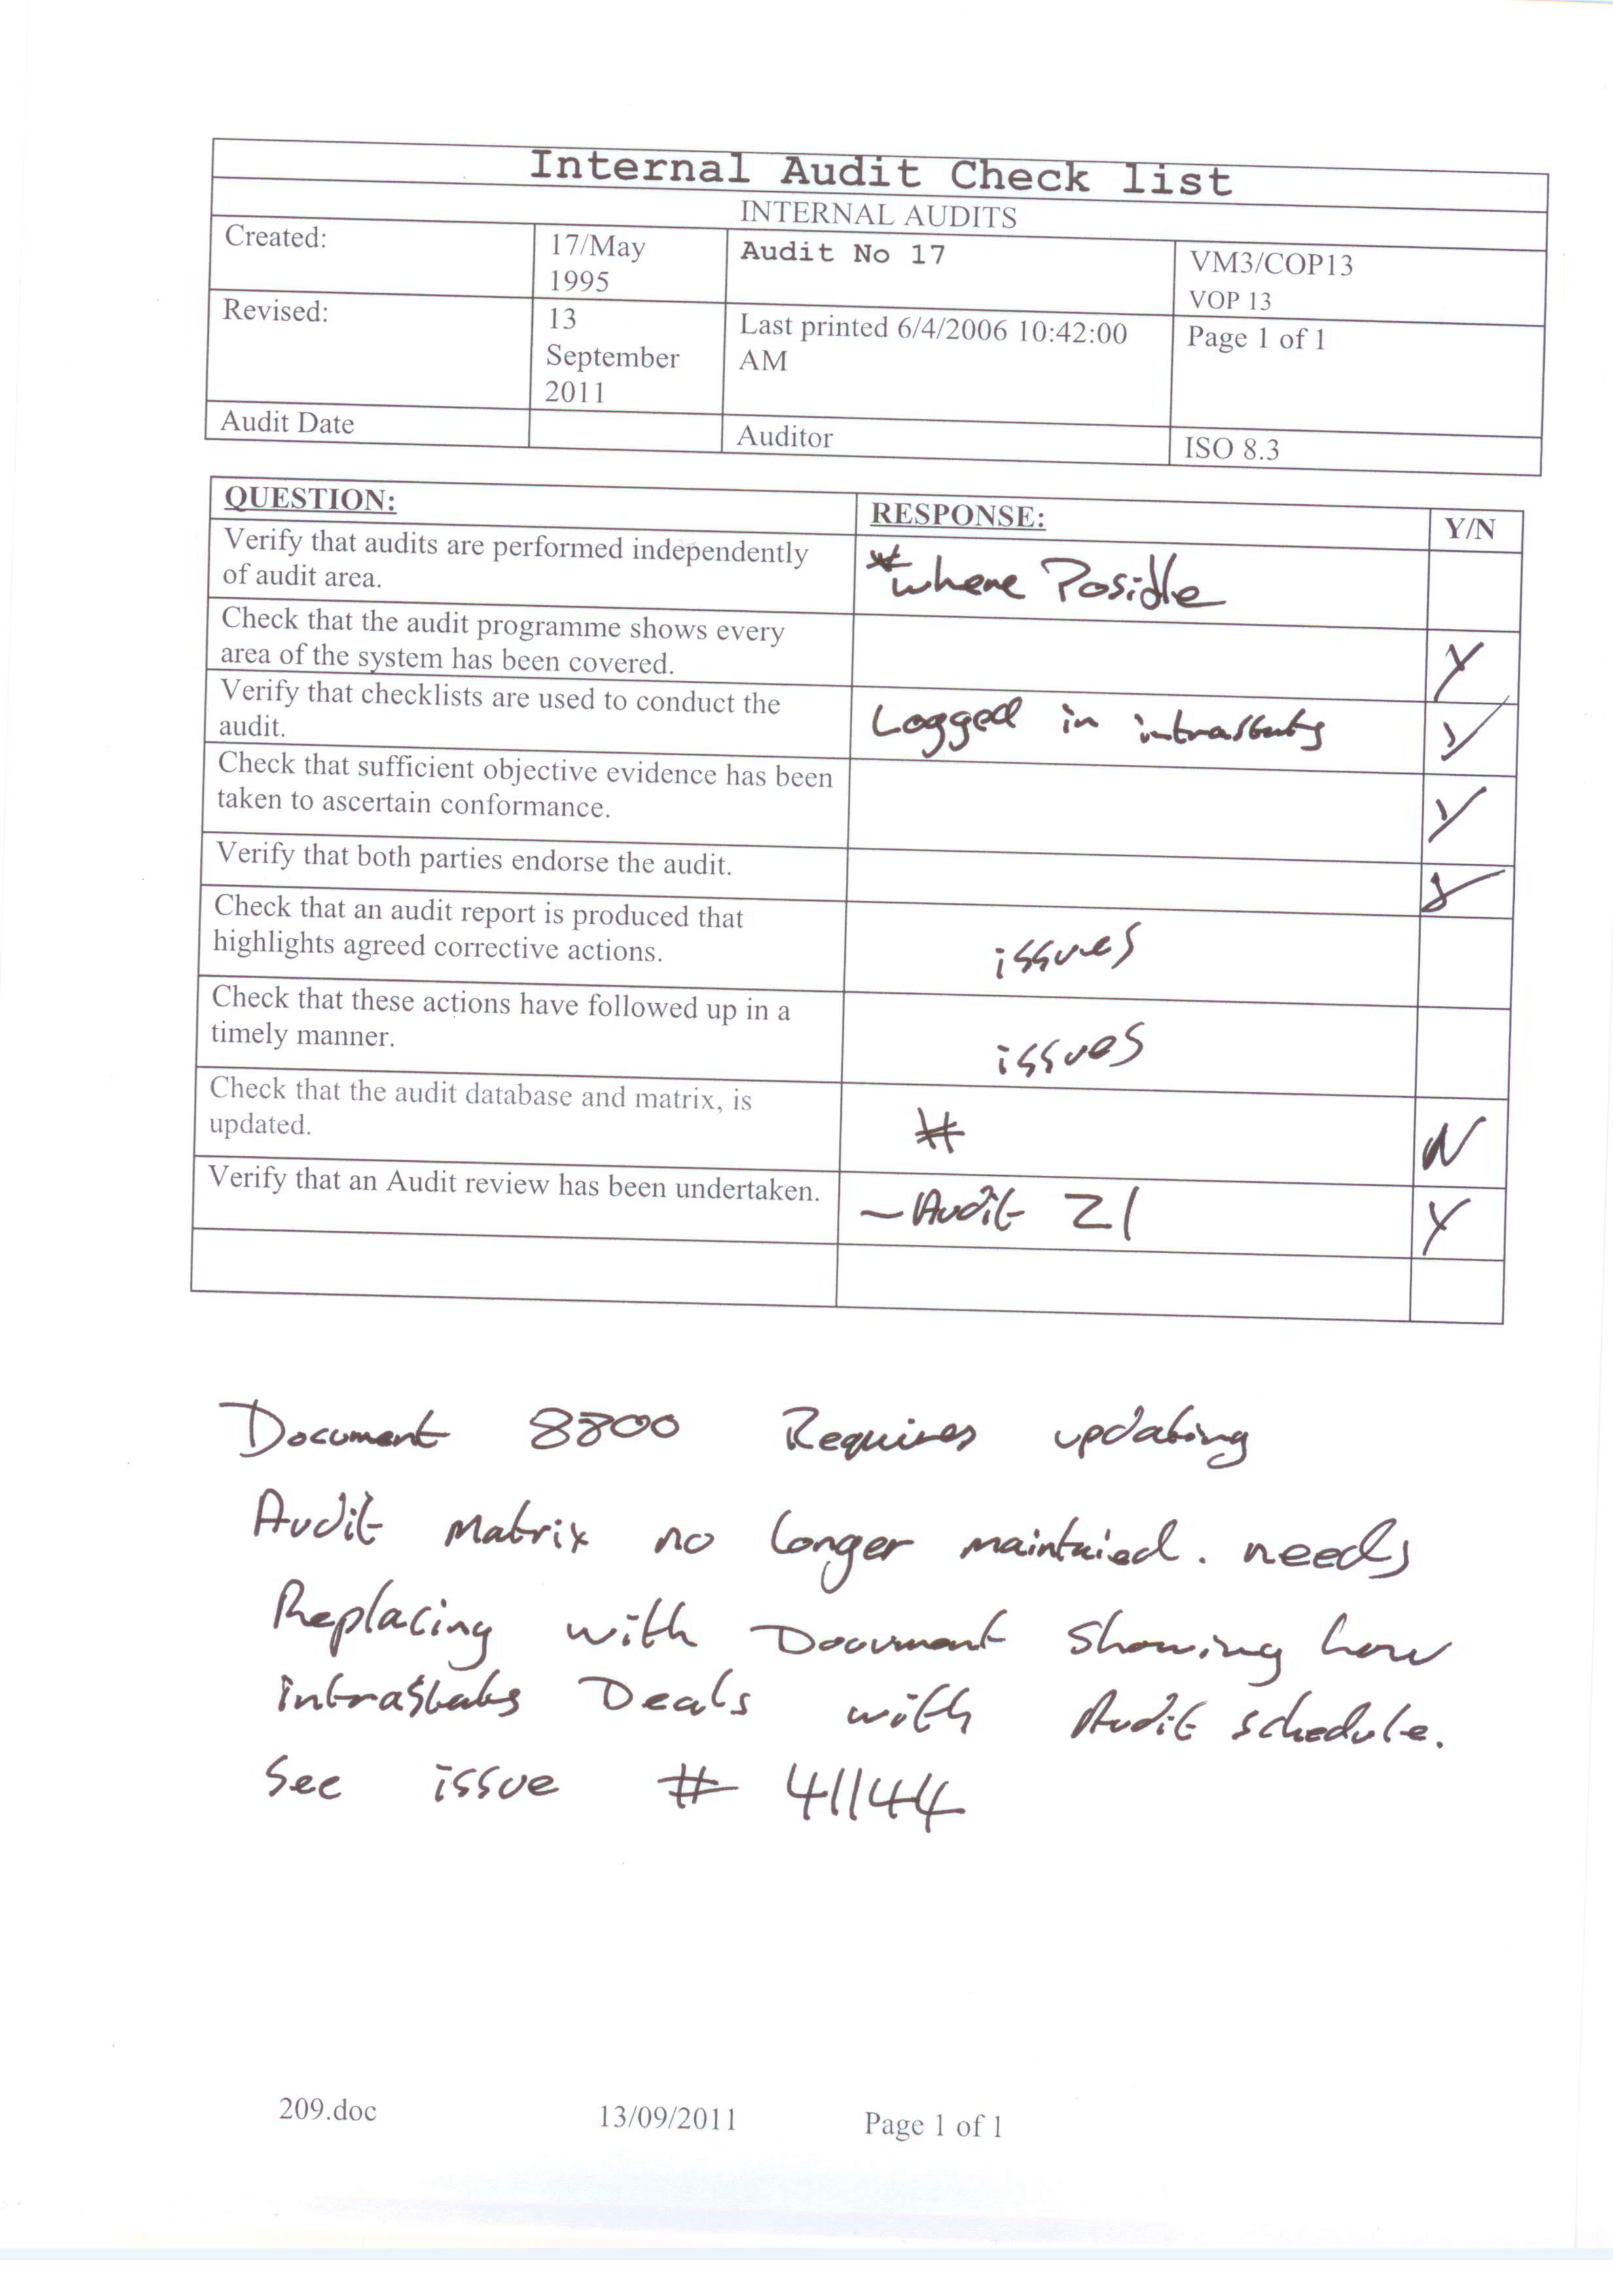 Internal Audit Check list
INTERNAL AUDITS
Created: 17/May 1995 Audit No 17 VM3/COP13
VOP 13
Revised: 13 September 2011 Last printed 6/4/2006 10:42:00 AM Page 1 of 1
Audit Date Auditor ISO 8.3
QUESTION: RESPONSE: Y/N
Verify that audits are performed independently
of audit area.
*where Posible
Check that the audit programme shows every
area of the system has been covered.
Y
Verify that checklists are used to conduct the
audit.
Logged in intrastats
Y
Check that sufficient objective evidence has been
taken to ascertain conformance.
Y
Verify that both parties endorse the audit.
Check that an audit report is produced that
highlights agreed corrective actions.
issues
Check that these actions have followed up in a
timely manner.
issues
Check that the audit database and matrix, is
updated.
#
N
Verify that an Audit review has been undertaken.
- Audit 21
Y
Document 8800 Requires updating
Audit Matrix no longer maintaied. needs
Replacing with Document showing how
intrastats Deals with Audit schedule.
See issue # 41144
209.doc 13/09/2011 Page 1 of 1